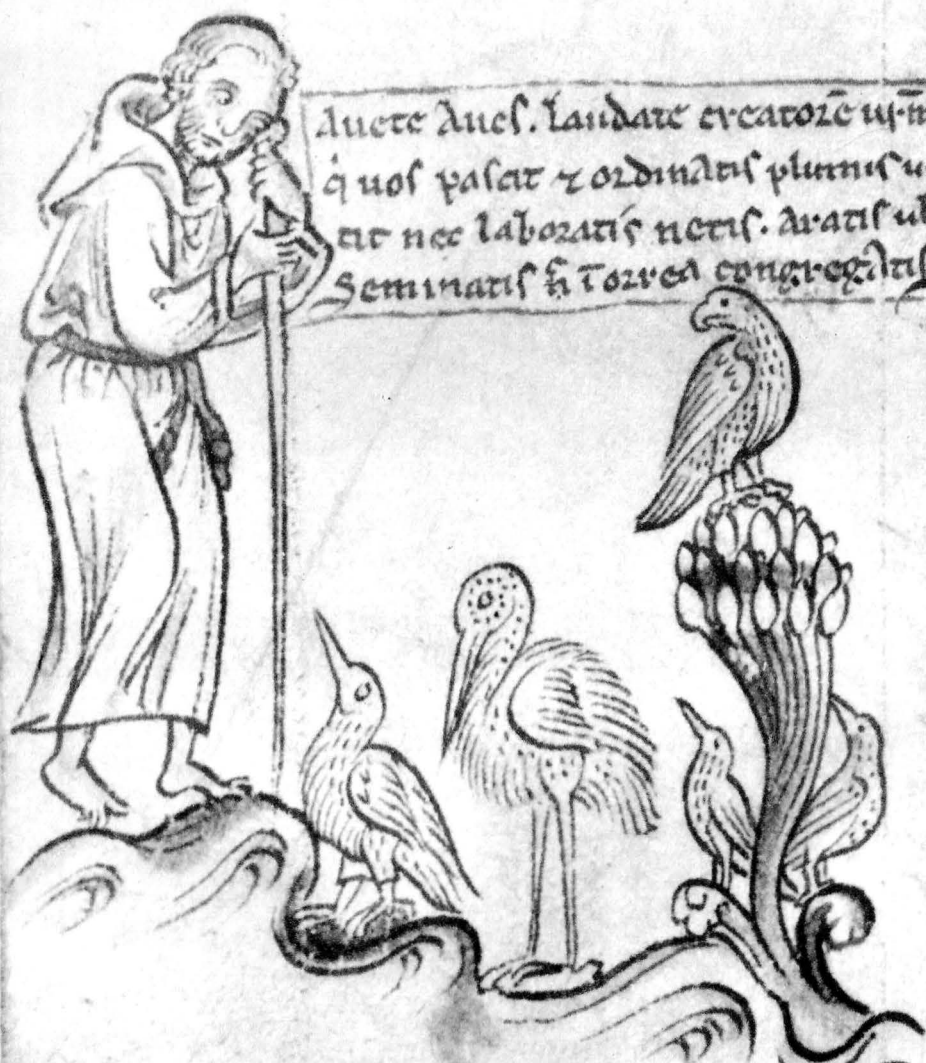 Auete Aues. Laudate creatorē ur̄m
q̇ uos pascit ⁊ ordinatis plumis u
tit nec laboratis netis. Aratis ul
Seminatis ħ ī orrea congregatis